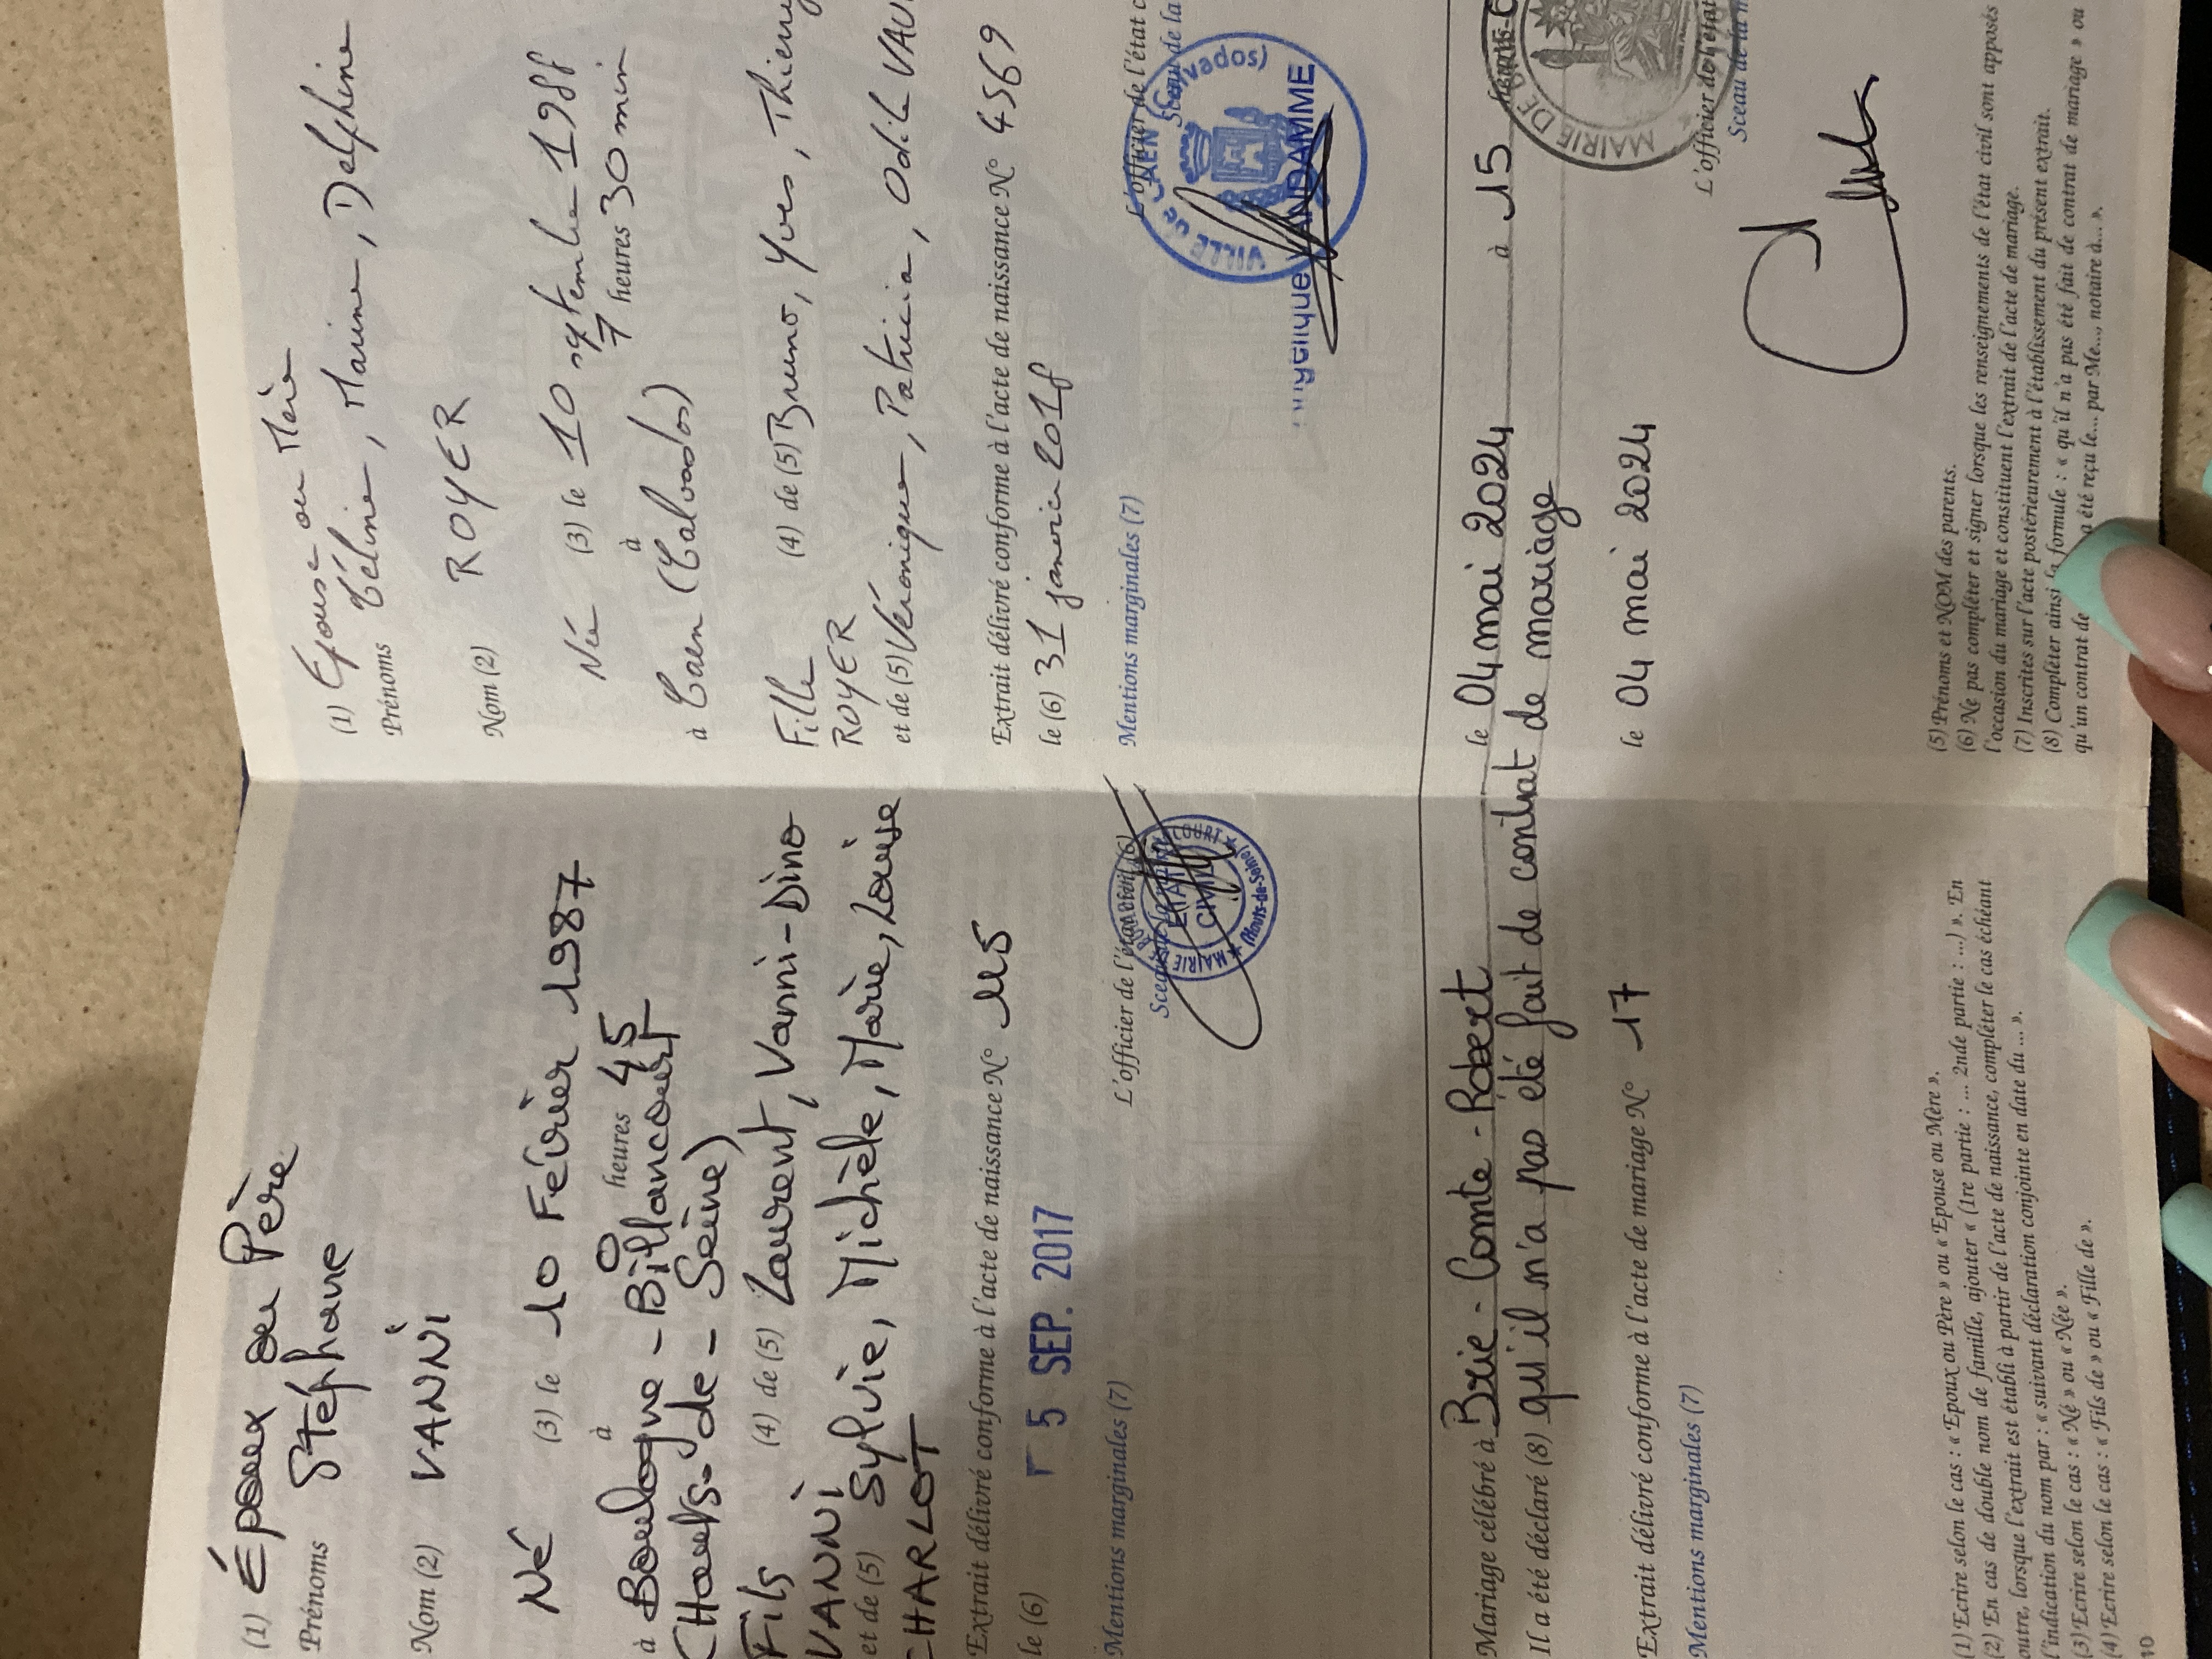 (1) Époux ou Père
Prénoms Stéphane
Nom (2) VANNI
Né (3) le 10 Février 1987
à 0 heures 45
à Boulogne-Billancourt
(Hauts-de-Seine)
Fils (4) de (5) Laurent, Vanni-Dino
VANNI
et de (5) Sylvie, Michèle, Marie, Louise
CHARLOT
Extrait délivré conforme à l'acte de naissance N° 115
le (6) 5 SEP. 2017
L'officier de l'état civil (6)
Sceau de la
MAIRIE
ÉTAT
CIVIL
(Hauts-de-Seine)
Mentions marginales (7)
(1) Épouse ou Mère
Prénoms Céline, Marine, Delphine
Nom (2) ROYER
Née (3) le 10 septembre 1988
à 7 heures 30 min
à Caen (Calvados)
Fille (4) de (5) Bruno, Yves, Thierry
ROYER
et de (5) Véronique, Patricia, Odile
Extrait délivré conforme à l'acte de naissance N° 4569
le (6) 31 janvier 2018
L'officier de l'état
Sceau de la
VILLE de CAEN (Calvados)
VANDAMME
Mentions marginales (7)
Mariage célébré à Brie-Comte-Robert le 04 mai 2024 à 15 heures
Il a été déclaré (8) qu'il n'a pas été fait de contrat de mariage
Extrait délivré conforme à l'acte de mariage N° 17 le 04 mai 2024
MAIRIE DE
L'officier de l'état
Sceau de la
Mentions marginales (7)
(1) Ecrire selon le cas : « Epoux ou Père » ou « Epouse ou Mère ».
(2) En cas de double nom de famille, ajouter « (1re partie : ... 2nde partie : ...) ». En
outre, lorsque l'extrait est établi à partir de l'acte de naissance, compléter le cas échéant
l'indication du nom par : « suivant déclaration conjointe en date du ... ».
(3) Ecrire selon le cas : « Né » ou « Née ».
(4) Ecrire selon le cas : « Fils de » ou « Fille de ».
10
(5) Prénoms et NOM des parents.
(6) Ne pas compléter et signer lorsque les renseignements de l'état civil sont apposés
l'occasion du mariage et constituent l'extrait de l'acte de mariage.
(7) Inscrites sur l'acte postérieurement à l'établissement du présent extrait.
(8) Compléter ainsi la formule : « qu'il n'a pas été fait de contrat de mariage » ou
qu'un contrat de a été reçu le... par Me..., notaire à... ».